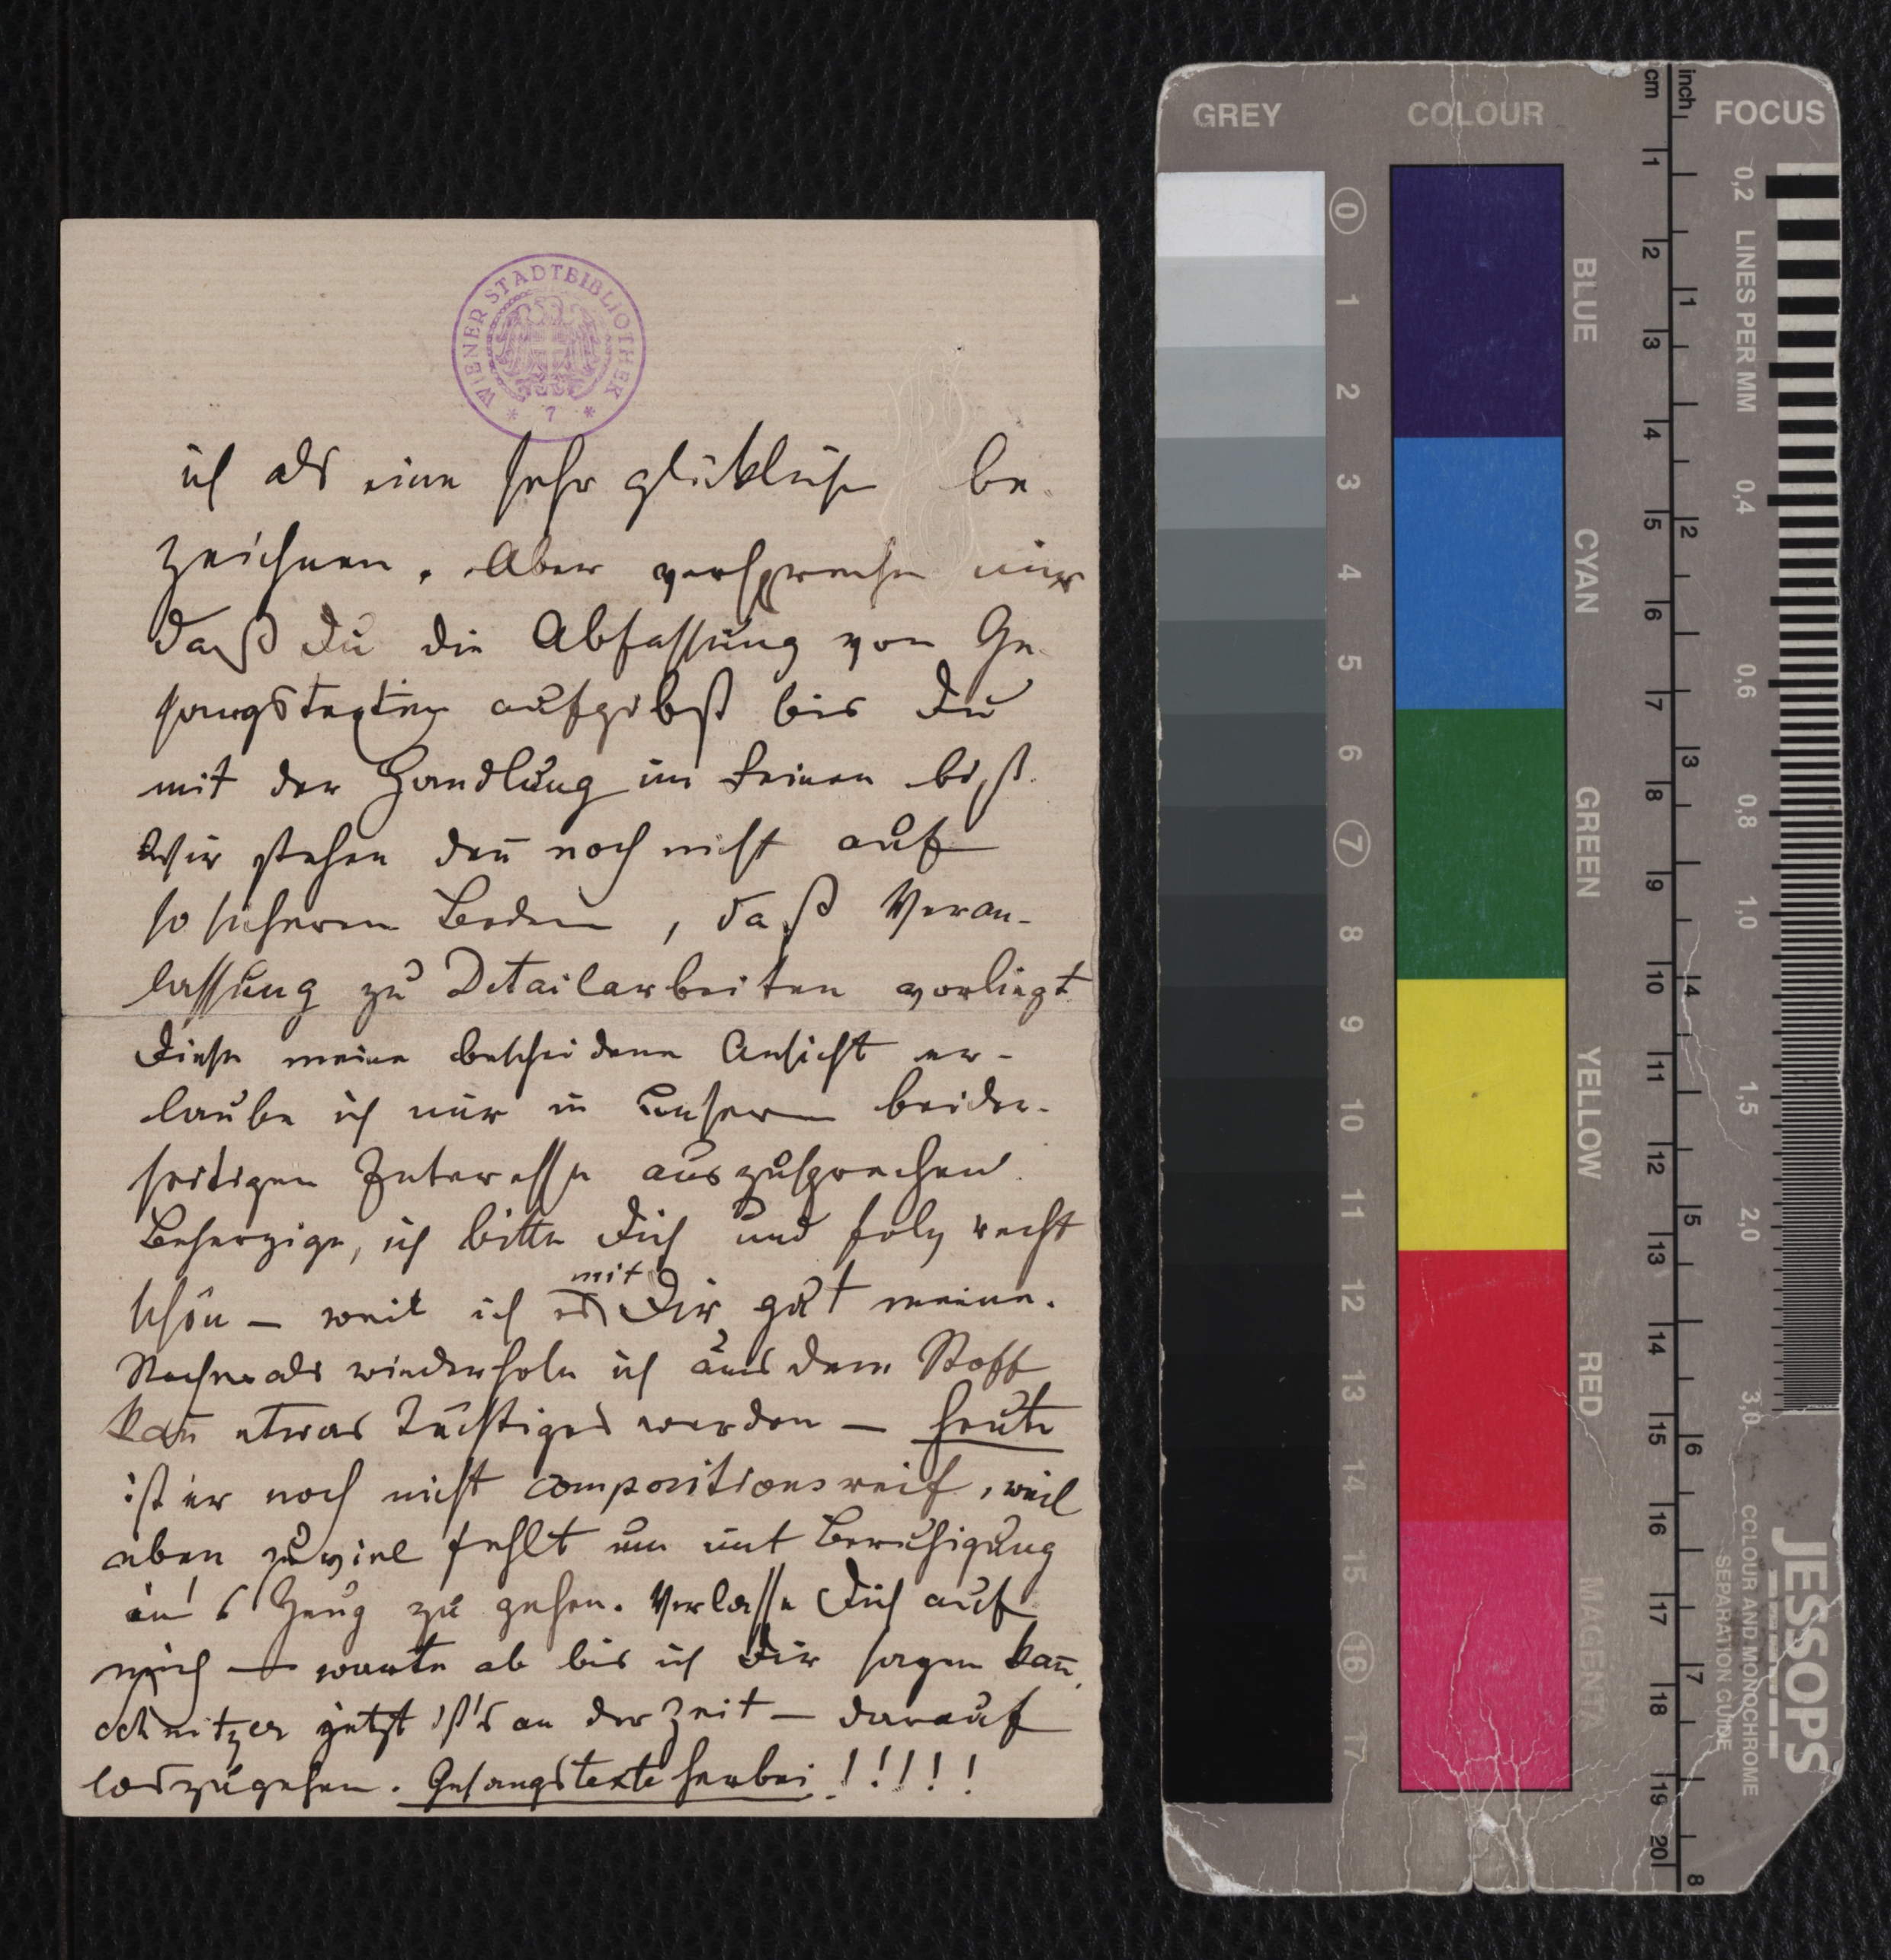 WIENER STADTBIBLIOTHEK
* 7 *
ich als eine sehr glückliche be-
zeichnen. Aber verspreche mir
daß Du die Abfassung von Ge-
sangstexten aufgibst bis Du
mit der Handlung im Reinen bist.
Wir stehen den̄ noch nicht auf
so sicherem Boden, daß Veran-
lassung zu Detailarbeiten vorliegt
Diese meine bescheidene Ansicht er-
laube ich mir in unserem beider-
seitigen Interesse auszusprechen.
Beherzige, ich bitte Dich und folg recht
schön – weil ich es mit Dir gut meine.
Nochmals wiederhole ich aus dem Stoff
kan̄ etwas Tüchtiges werden – heute
ist er noch nicht compositionsreif, weil
eben zu viel fehlt um mit Beruhigung
in's Zeug zu gehen. Verlasse Dich auf
mich – warte ab bis ich Dir sagen kan̄,
Schnitzer jetzt ist's an der Zeit – darauf
loszugehen. Gesangstexte herbei!!!!!
GREY
COLOUR
FOCUS
cm
inch
0 1 2 3 4 5 6 7 8 9 10 11 12 13 14 15 16 17
BLUE
CYAN
GREEN
YELLOW
RED
MAGENTA
1 2 3 4 5 6 7 8 9 10 11 12 13 14 15 16 17 18 19 20
1 2 3 4 5 6 7 8
0,2 LINES PER MM 0,4 0,6 0,8 1,0 1,5 2,0 3,0
JESSOPS
COLOUR AND MONOCHROME
SEPARATION GUIDE